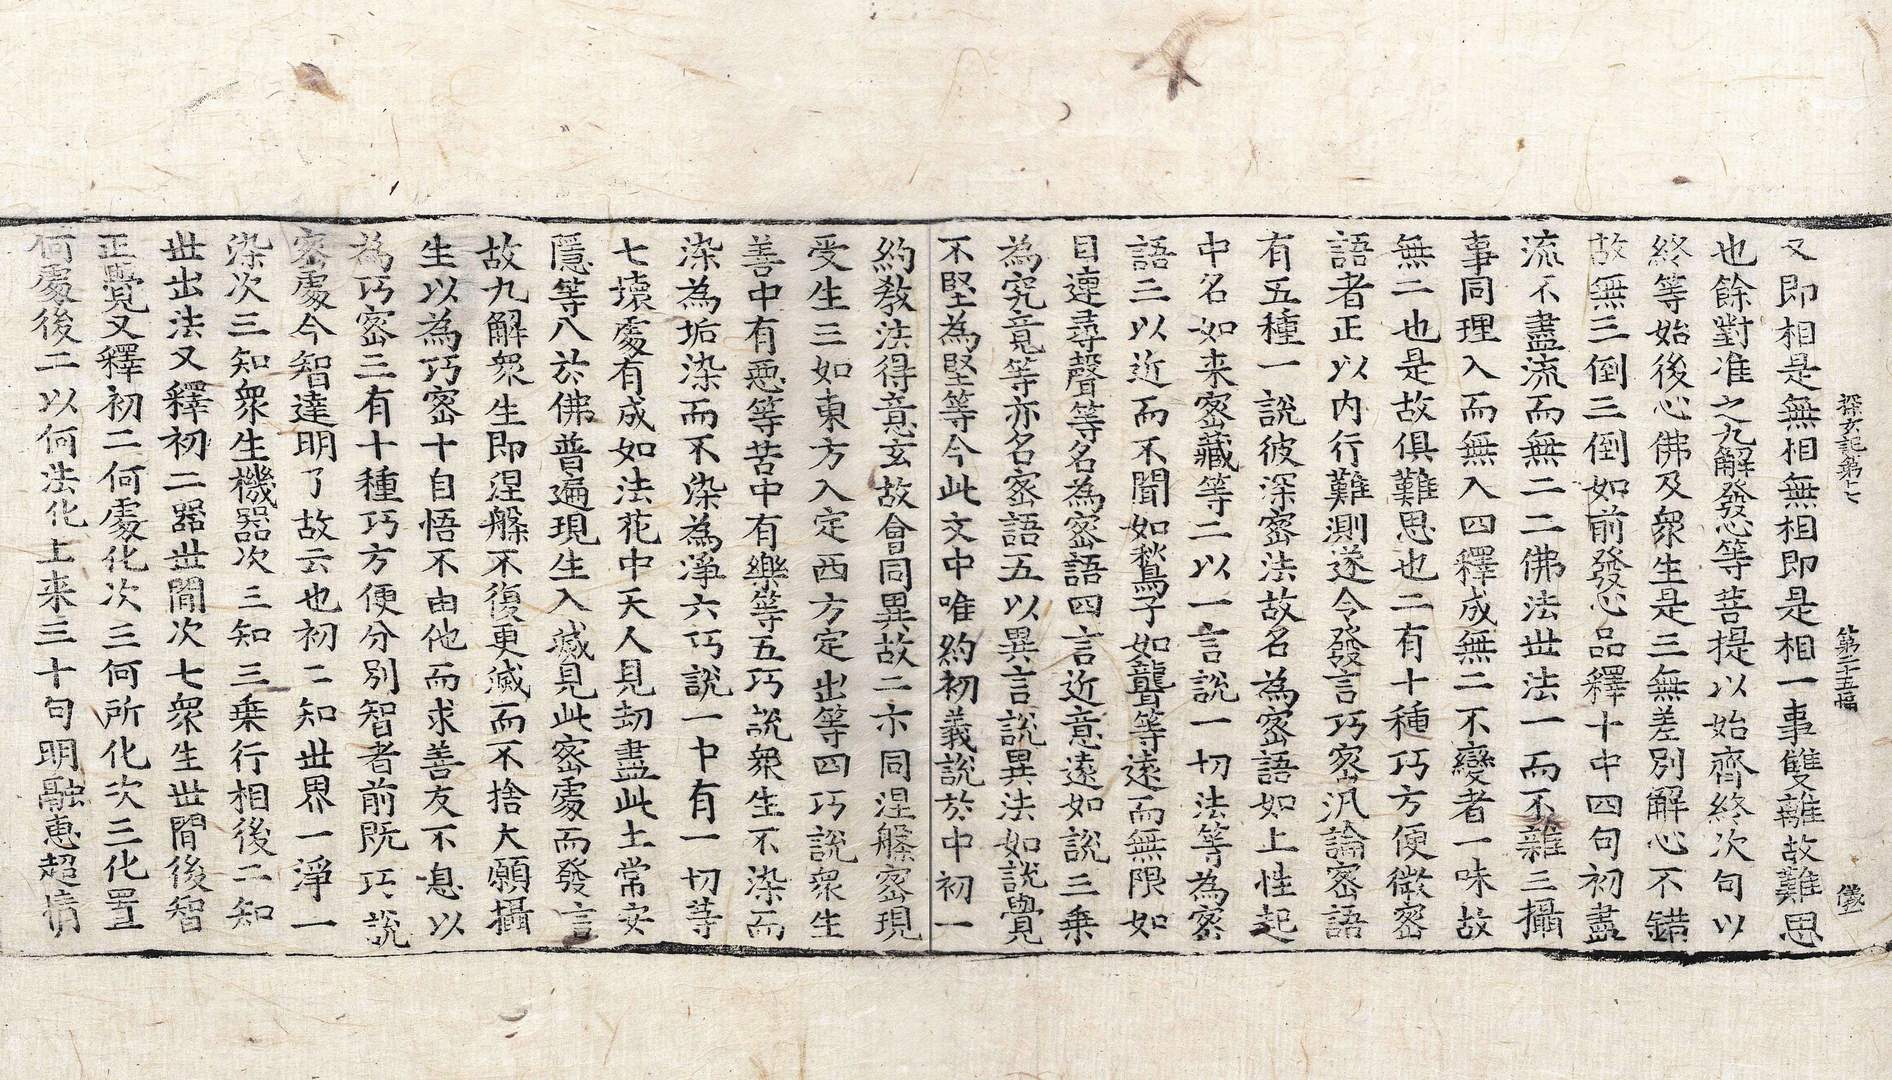 探玄記第十七 第二十五幅 儀
又即相是無相無相即是相一事雙離故難思
也餘對准之九解發心等菩提以始齊終次句以
終等始後心佛及衆生是三無差別解心不錯
故無三倒三倒如前發心品釋十中四句初盡
流不盡流而無二二佛法世法一而不雜三攝
事同理入而無入四釋成無二不變者一味故
無二也是故俱難思也二有十種巧方便微密
語者正以内行難測遂令發言巧密汎論密語
有五種一說彼深密法故名為密語如上性起
中名如来密藏等二以一言說一切法等為密
語三以近而不聞如鶖子如聾等遠而無限如
目連尋聲等名為密語四言近意遠如說三乗
為究竟等亦名密語五以異言說異法如說覺
不堅為堅等今此文中唯約初義說於中初一
約教法得意玄故會同異故二亦同涅槃密現
受生三如東方入定西方定出等四巧說衆生
善中有惡等苦中有樂等五巧說衆生不染而
染為垢染而不染為淨六巧說一中有一切等
七壞處有成如法花中天人見劫盡此土常安
隱等八於佛普遍現生入滅見此密處而發言
故九解衆生即涅槃不復更滅而不捨大願攝
生以為巧密十自悟不由他而求善友不息以
為巧密三有十種巧方便分別智者前既巧說
密處今智達明了故云也初二知世界一淨一
染次三知衆生機器次三知三乗行相後二知
世出法又釋初二器世間次七衆生世間後智
正覺又釋初二何處化次三何所化次三化置
何處後二以何法化上来三十句明融恵超情